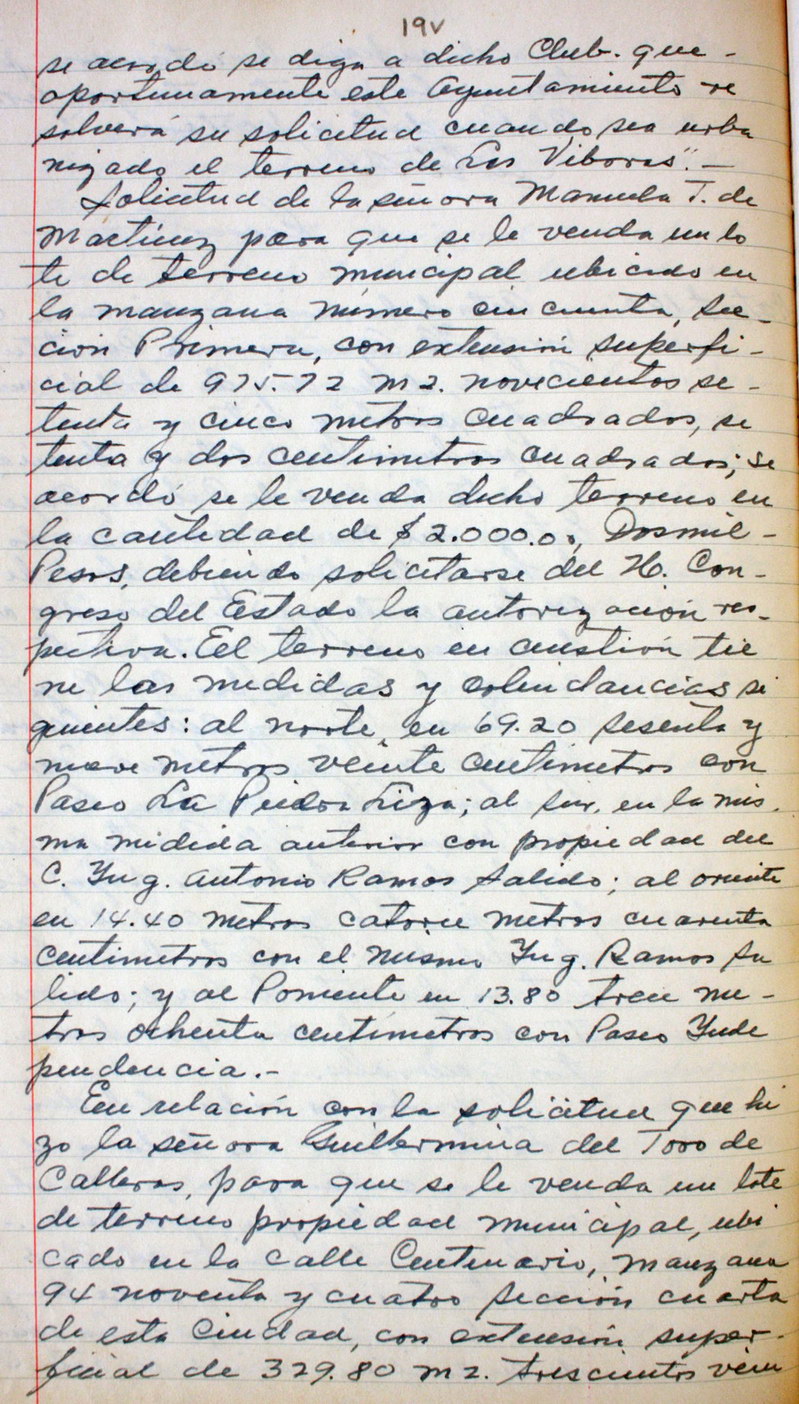 19v
se acordó se diga a dicho Club. que-
oportunamente este Ayuntamiento re
solverá su solicitud cuando sea urba
nizado el terreno de Las Viboras".-
Solicitud de la señora Manuela T. de
Martinez para que se le venda un lo
te de terreno municipal ubicado en
la manzana número cincuenta, Sec-
ción Primera, con extensión superfi-
cial de 975.72 m2. novecientos se-
tenta y cinco metros cuadrados, se
tenta y dos centimetros cuadrados; se
acordó se le venda dicho terreno en
la cantidad de $2.000.00, Dos mil-
Pesos, debiendo solicitarse del H. Con-
greso del Estado la autorización res-
pectiva. El terreno en cuestión tie
ne las medidas y colindancias si
guientes: al norte, en 69.20 sesenta y
nueve metros veinte centimetros con
Paseo La Piedra Liza; al sur, en la mis.
ma medida anterior con propiedad del
C. Ing. Antonio Ramos Salido; al oriente
en 14.40 metros catorce metros cuarenta
centimetros con el mismo Ing. Ramos Sa
lido; y al Poniente en 13.80 trece me-
tros ochenta centimetros con Paseo Inde
pendencia.-
En relación con la solicitud que hi
zo la señora Guillermina del Toro de
Calleros, para que se le venda un lote
de terreno propiedad municipal, ubi
cado en la calle Centenario, manzana
94 noventa y cuatro sección cuarta
de esta Ciudad, con extensión super-
ficial de 329.80 m2. trescientos vein